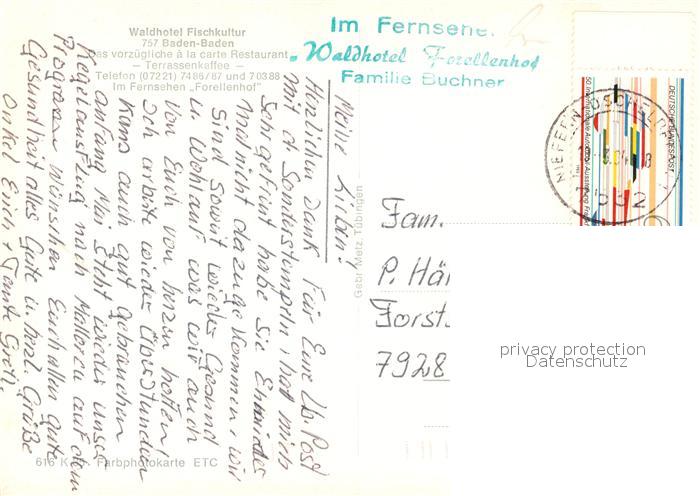 Waldhotel Fischkultur
757 Baden-Baden
Das vorzügliche à la carte Restaurant
– Terrassenkaffee –
Telefon (07221) 7486/87 und 70388
Im Fernsehen „Forellenhof"
Im Fernsehen
„Waldhotel Forellenhof
Familie Buchner
Meine Lieben!
Herzlichen Dank für Eure Lb. Post
mit d. Sonderstempeln, hat mich
Sehr gefreut habe Sie
mal nicht dazu gekommen, wir
sind soweit wieder Gesund
u. Wohlauf was wir auch
von Euch von herzen hoffen
Ich arbeite wieder Überstunden
kann auch gut gebrauchen
anfang Mai steht wieder unser
Kegelausflug nach Mallorca auf dem
Programm Wünschen Euch allen gute
Gesundheit alles Gute u. herzl. Grüße
Onkel Erich + Tante Gretl.
Gebr. Metz, Tübingen
616 Farbphotokarte ETC
DEUTSCHE BUNDESPOST
50 Internationale Automobil-Ausstellung
NIEFERN-ÖSCHELBRONN
7532
Fam.
P. Hä
Forst
7928
privacy protection
Datenschutz